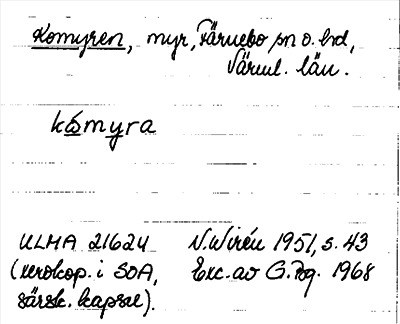 Komyren, myr, Färnebo sn o. hd,
Värml. län.
kómyra
ULMA 21624 N. Wirén 1951, s. 43
(xerokop. i SOA, Exc. av G. Bg. 1968
särsk. kapsel).